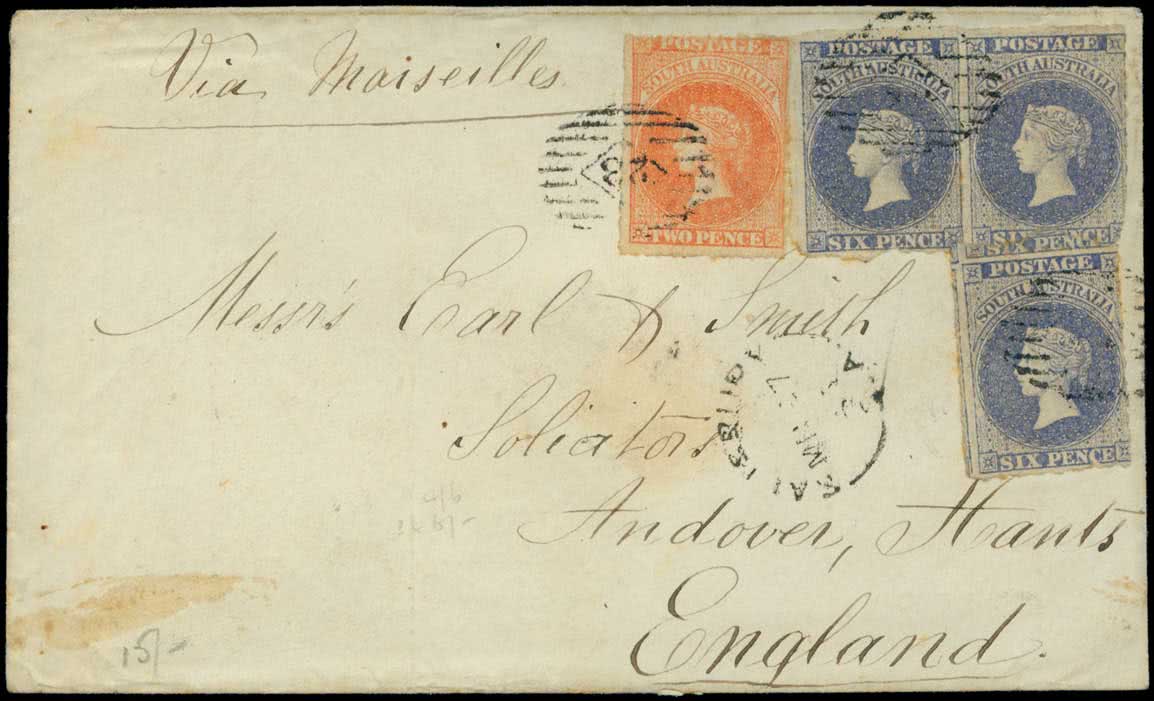 Via Marseilles
POSTAGE
SOUTH AUSTRALIA
TWO PENCE
POSTAGE
SOUTH AUSTRALIA
SIX PENCE
POSTAGE
SOUTH AUSTRALIA
SIX PENCE
POSTAGE
SOUTH AUSTRALIA
SIX PENCE
Messrs Earl & Smith
Solicitors
Andover, Hants
England.
SALISBURY
15/-